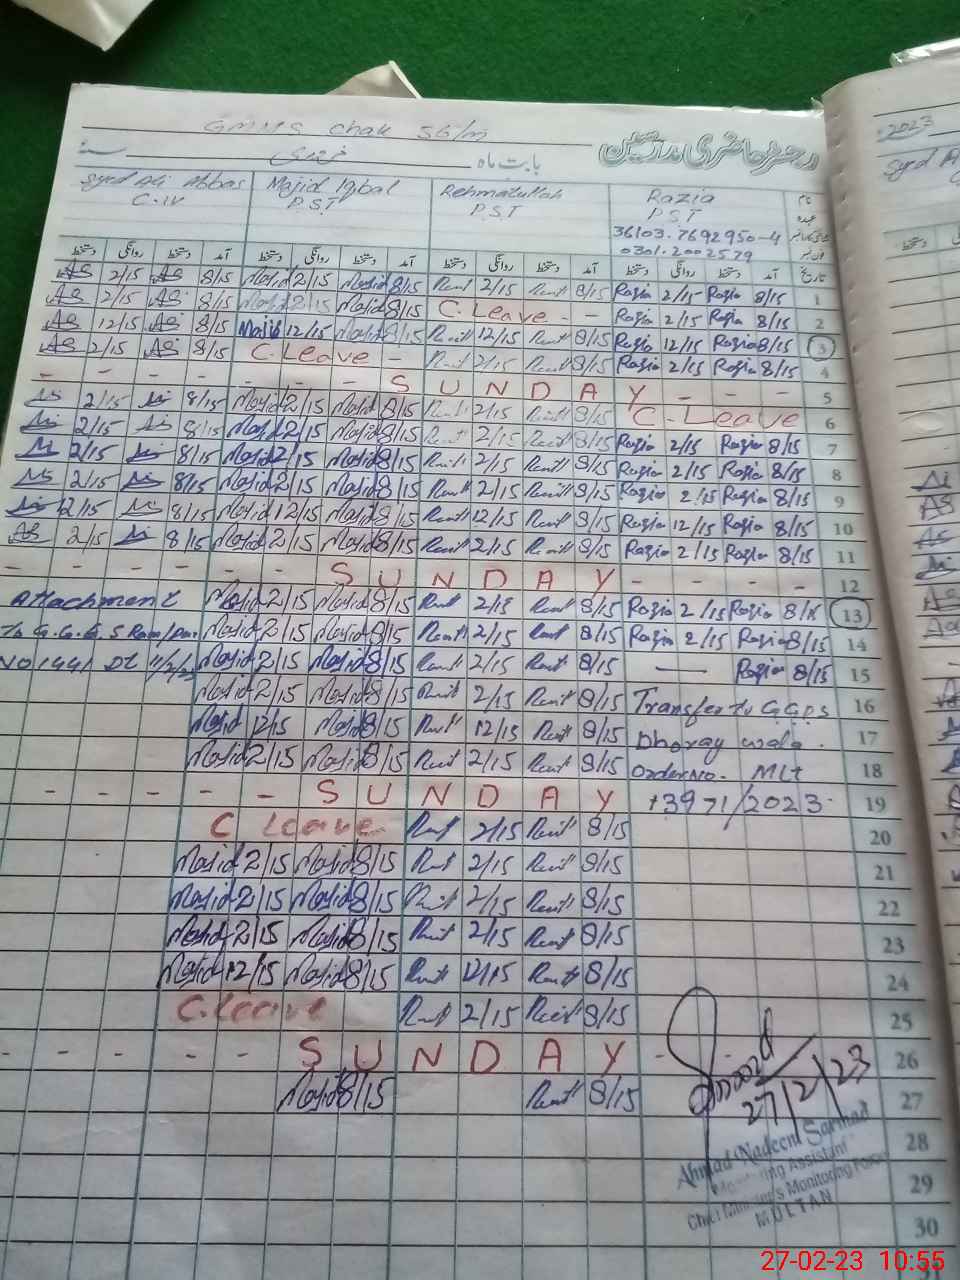 GMMS Chak 56/m
رجسٹر حاضری مدرسین
بابت ماہ فروری سنہ
Syed Ali Abbas Majid Iqbal Rehmatullah Razia نام
C.IV P.S.T P.S.T P.S.T عہدہ
36103-7692950-4
0301-2002579
دستخط روانگی دستخط آمد دستخط روانگی دستخط آمد دستخط روانگی دستخط آمد دستخط روانگی دستخط آمد تاریخ
AS 2/15 AS 8/15 Majid 2/15 Majid 8/15 Remt 2/15 Remt 8/15 Razia 2/15 Razia 8/15 1
AS 2/15 AS 8/15 Majid 2/15 Majid 8/15 C.Leave - - Razia 2/15 Razia 8/15 2
AS 12/15 AS 8/15 Majid 12/15 Majid 8/15 Remt 12/15 Remt 8/15 Razia 12/15 Razia 8/15 3
AS 2/15 AS 8/15 C.Leave - Remt 2/15 Remt 8/15 Razia 2/15 Razia 8/15 4
- - - - - - - S U N D A Y - - - 5
2/15 8/15 Majid 2/15 Majid 8/15 Remt 2/15 Remt 8/15 C-Leave 6
2/15 8/15 Majid 2/15 Majid 8/15 Remt 2/15 Remt 8/15 Razia 2/15 Razia 8/15 7
2/15 8/15 Majid 2/15 Majid 8/15 Remt 2/15 Remt 8/15 Razia 2/15 Razia 8/15 8
2/15 8/15 Majid 2/15 Majid 8/15 Remt 2/15 Remt 8/15 Razia 2/15 Razia 8/15 9
12/15 8/15 Majid 12/15 Majid 8/15 Remt 12/15 Remt 8/15 Razia 12/15 Razia 8/15 10
AS 2/15 8/15 Majid 2/15 Majid 8/15 Remt 2/15 Remt 8/15 Razia 2/15 Razia 8/15 11
- - - - - - S U N D A Y - - - - 12
Attachment Majid 2/15 Majid 8/15 Remt 2/15 Remt 8/15 Razia 2/15 Razia 8/15 13
To G.G.E.S Majid 2/15 Majid 8/15 Remt 2/15 Remt 8/15 Razia 2/15 Razia 8/15 14
NO 1441 Dt Majid 2/15 Majid 8/15 Remt 2/15 Remt 8/15 — Razia 8/15 15
Majid 2/15 Majid 8/15 Remt 2/15 Remt 8/15 Transfer to G.G.P.S 16
Majid 12/15 Majid 8/15 Remt 12/15 Remt 8/15 Dhoray wala. 17
Majid 2/15 Majid 8/15 Remt 2/15 Remt 8/15 Order No. MLt 18
- - - - - S U N D A Y 13971/2023 19
C Leave Remt 2/15 Remt 8/15 20
Majid 2/15 Majid 8/15 Remt 2/15 Remt 8/15 21
Majid 2/15 Majid 8/15 Remt 2/15 Remt 8/15 22
Majid 2/15 Majid 8/15 Remt 2/15 Remt 8/15 23
Majid 12/15 Majid 8/15 Remt 12/15 Remt 8/15 24
C.Leave Remt 2/15 Remt 8/15 25
- - - - - S U N D A Y - - 26
Majid 8/15 Remt 8/15 27
27/2/23
28
29
30
Ahmad Nadeem Sarmad
Monitoring Assistant
Chief Minister's Monitoring Force
MULTAN
2023
27-02-23 10:55